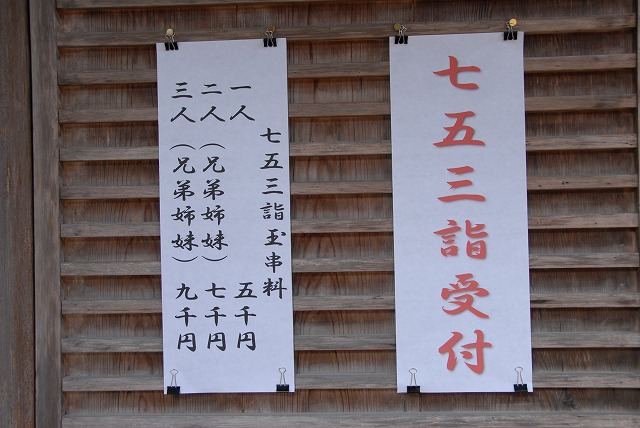 七五三詣受付
七五三詣玉串料
一人 五千円
二人（兄弟姉妹）七千円
三人（兄弟姉妹）九千円